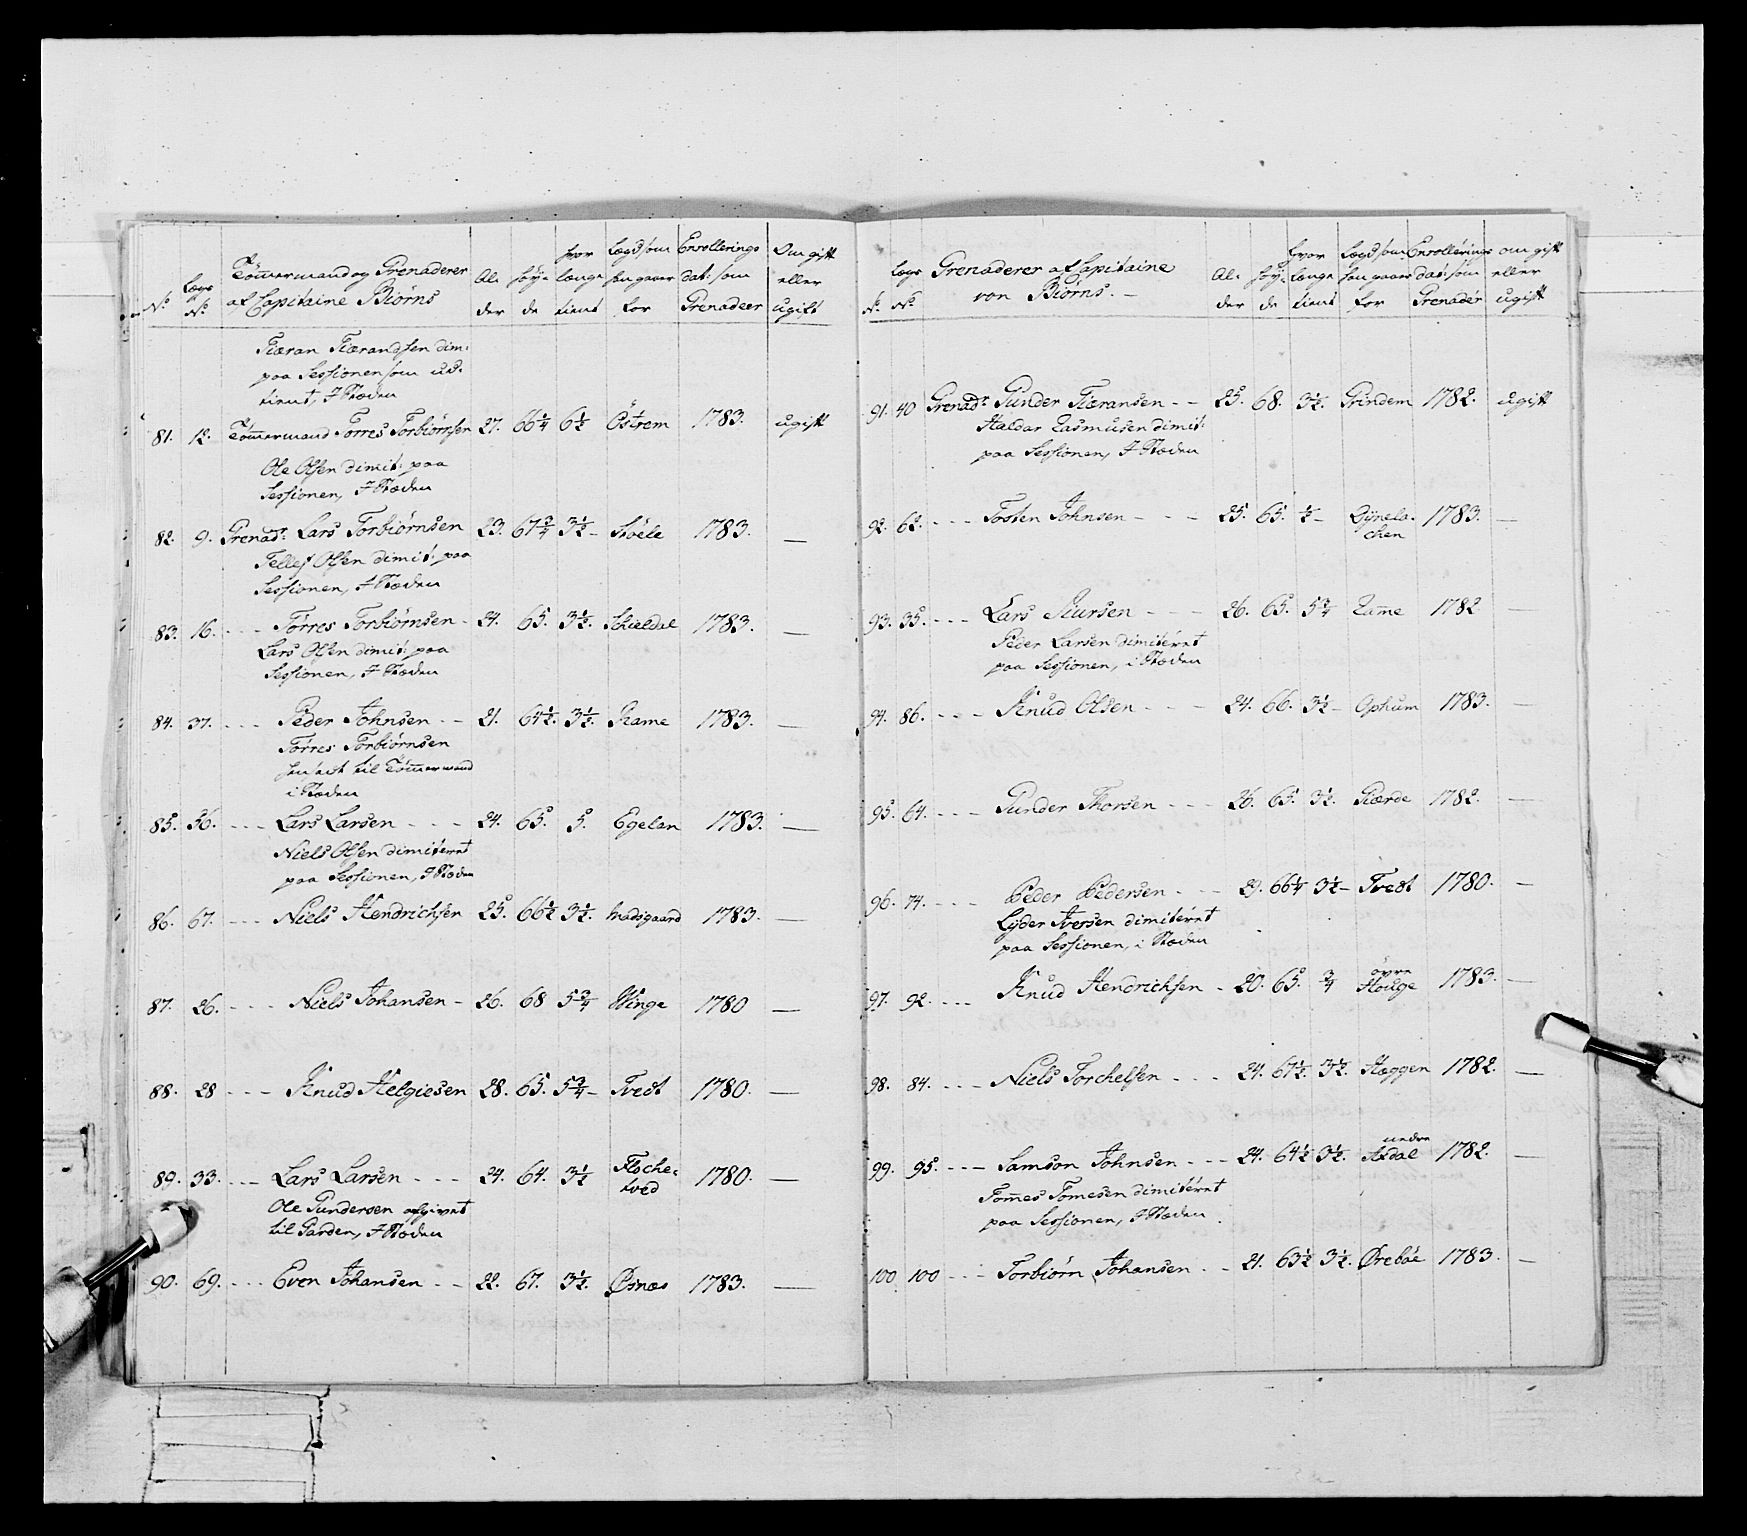 No. Lægs No. Tömmermand og Grenaderer af Capitaine Biörns Al: der Höy: de hvor længe tient Lægd som han gaaer for Enrollerings dat: som Grenadeer Om gift eller ugift
Tieran Tierandsen dim:
paa Sessionen som ud:
tient, I Stæden
81. 12. Tömmermand Torres Torbiörnsen 27. 66¼ 6½ Östrem 1783. ugift
Ole Olsen dimit: paa
Sessionen, I Stæden
82. 9. Grenadr. Lars Torbiörnsen 23. 67¾ 3½ – Stöele 1783. —
Tellef Olsen dimit: paa
Sessionen, I Stæden
83. 16. - - - Törres Torbiörnsen - 24. 65. 3½. Schieldal 1783. —
Lars Olsen dimit: paa
Sessionen, I Stæden
84. 37. - - - Peder Johnsen - - 21. 64½. 3½. Rame 1783. —
Törres Torbiörnsen
til Tömmermand
i Stæden
85. 56. - - - Lars Larsen - - - 24. 65. 5. Egelan 1783. —
Niels Olsen dimiteret
paa Sessionen, I Stæden
86. 67. - - - Niels Hendrichsen 25. 66½ 3½. Madsgaard 1783. —
87. 26. - - - Niels Johansen - 26. 68 5¾ Winge 1780 —
88. 28 - - - Knud Helgiesen 28. 65. 5¾ – Tvedt 1780. —
89. 33. - - - Lars Larsen - - - 24. 64. 3½ Floche: tved 1780. —
Ole Gundersen afgivet
til Garden, I Stæden
90. 69. - - - Even Johansen - - 22. 67. 3½. Ørnæs 1783. —
No. Lægs No. Grenaderer af Capitaine von Biörns. – Al: der Höy: de hvor længe tient Lægd som han gaaer for Enrollerings dat: som Grenadér om gift eller ugift
91. 40 Grenadr. Gunder Tieransen - - 25. 68. 3½. Grindem 1782. ugift
Haldor Rasmusen dimit:
paa Sessionen, I Stæden
92. 62. - - - Tosten Johnsen - - - 25. 65. ½ – chen 1783. —
93. 35. - - - Lars Siursen - - - 26. 65. 5¾ Rame 1782
Peder Larsen dimiteret
paa Sessionen, i Stæden
94. 86. - - - Knud Olsen - - - 24. 66. 3½ – Ophum 1783. —
95. 64. - - - Gunder Thorsen - - - 26. 65. 3½. Giærde 1782. —
96. 74. - - - Peder Pedersen - - - 29. 66¼ 3½ – Tvedt 1780. —
Lyder Iversen dimiteret
paa Sessionen, i Stæden
97. 92. - - - Knud Hendrichsen - 20. 65. ¾ övre Houge 1783. —
98. 84. - - - Niels Torchelsen - - - 24. 67½. 3½. Hæggen 1782. —
99. 95. - - - Samson Johnsen - - - 24. 64½ 3½. nedre Axdal 1782. —
Tomes Tomesen dimiteret
paa Sessionen, I Stæden
100. 100 - - - Torbiörn Johansen - - 21. 63½ 3½. Øreböe 1783. —